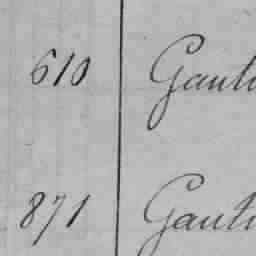 610 Gauti
871 Gauti